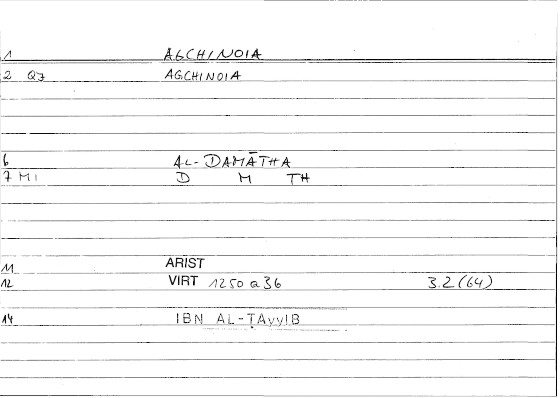 1 AGCHINOIA
2 Q7 AGCHINOIA
6 AL-DAMĀTHA
7 MI D M TH
11 ARIST
12 VIRT 1250 a 36 3.2 (64)
14 IBN AL-ṬAyyIB